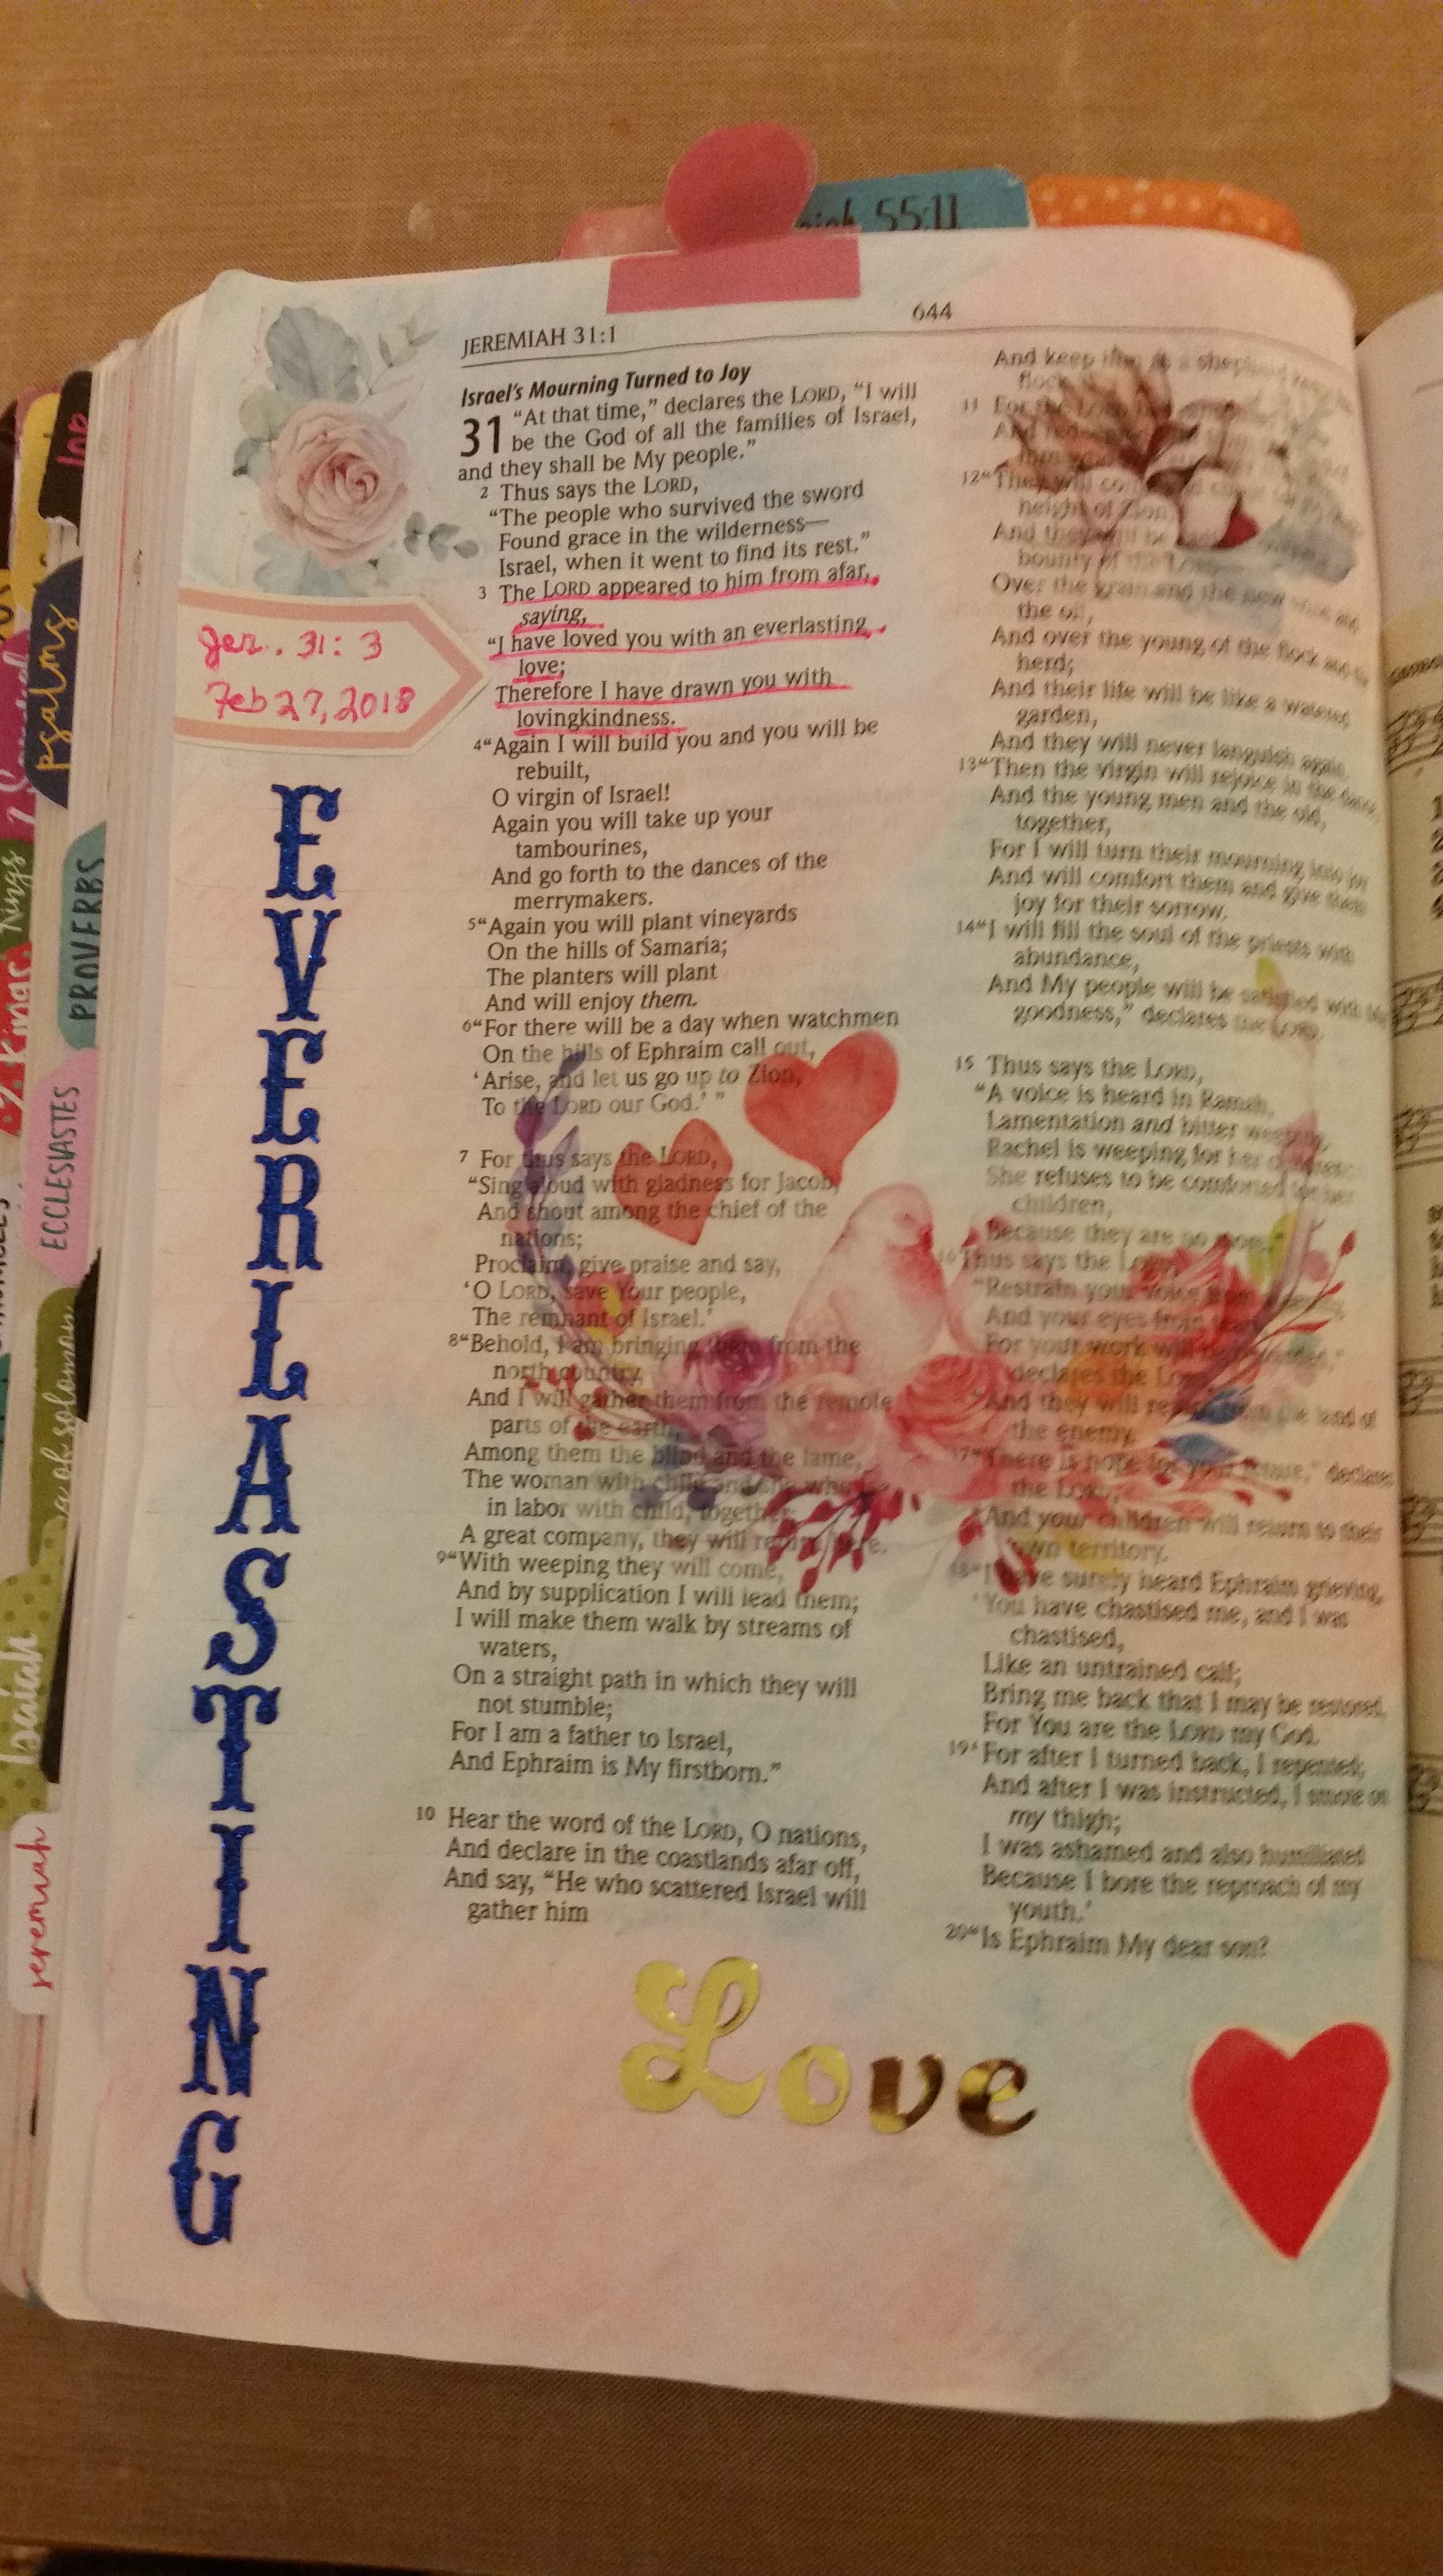 55:11
644
JEREMIAH 31:1
Israel's Mourning Turned to Joy
31 "At that time," declares the LORD, "I will
be the God of all the families of Israel,
and they shall be My people."
2 Thus says the LORD,
"The people who survived the sword
Found grace in the wilderness—
Israel, when it went to find its rest."
3 The LORD appeared to him from afar,
saying,
"I have loved you with an everlasting
love;
Therefore I have drawn you with
lovingkindness.
4 "Again I will build you and you will be
rebuilt,
O virgin of Israel!
Again you will take up your
tambourines,
And go forth to the dances of the
merrymakers.
5 "Again you will plant vineyards
On the hills of Samaria;
The planters will plant
And will enjoy them.
6 "For there will be a day when watchmen
On the hills of Ephraim call out,
'Arise, and let us go up to Zion,
To the LORD our God.' "
7 For thus says the LORD,
"Sing aloud with gladness for Jacob,
And shout among the chief of the
nations;
Proclaim, give praise and say,
'O LORD, save Your people,
The remnant of Israel.'
8 "Behold, I am bringing them from the
north country,
And I will gather them from the remote
parts of the earth,
Among them the blind and the lame,
The woman with child and she who
in labor with child, together;
A great company, they will return here.
9 "With weeping they will come,
And by supplication I will lead them;
I will make them walk by streams of
waters,
On a straight path in which they will
not stumble;
For I am a father to Israel,
And Ephraim is My firstborn."
10 Hear the word of the LORD, O nations,
And declare in the coastlands afar off,
And say, "He who scattered Israel will
gather him
And keep him as a shepherd
flock
11 For the LORD
And
12 "They will
height of Zion,
And they will be
bounty of the
Over the grain and the new wine and
the oil,
And over the young of the flock and the
herd;
And their life will be like a watered
garden,
And they will never languish again.
13 "Then the virgin will rejoice in the dance,
And the young men and the old,
together,
For I will turn their mourning into joy
And will comfort them and give them
joy for their sorrow.
14 "I will fill the soul of the priests with
abundance,
And My people will be satisfied with My
goodness," declares the LORD.
15 Thus says the LORD,
"A voice is heard in Ramah,
Lamentation and bitter weeping.
Rachel is weeping for her children;
She refuses to be comforted for her
children,
Because they are no more."
16 Thus says the LORD,
"Restrain your voice from
And your eyes from
For your work will be rewarded,"
declares the LORD,
"And they will return from the land of
the enemy.
17 "There is hope for your future," declares
the LORD,
"And your children will return to their
own territory.
18 "I have surely heard Ephraim grieving,
'You have chastised me, and I was
chastised,
Like an untrained calf;
Bring me back that I may be restored,
For You are the LORD my God.
19 'For after I turned back, I repented;
And after I was instructed, I smote on
my thigh;
I was ashamed and also humiliated
Because I bore the reproach of my
youth.'
20 "Is Ephraim My dear son?
Jer. 31:3
Feb 27, 2018
EVERLASTING
Love
Job
Psalms
PROVERBS
Kings
2. Kings
ECCLESIASTES
Isaiah
Jeremiah